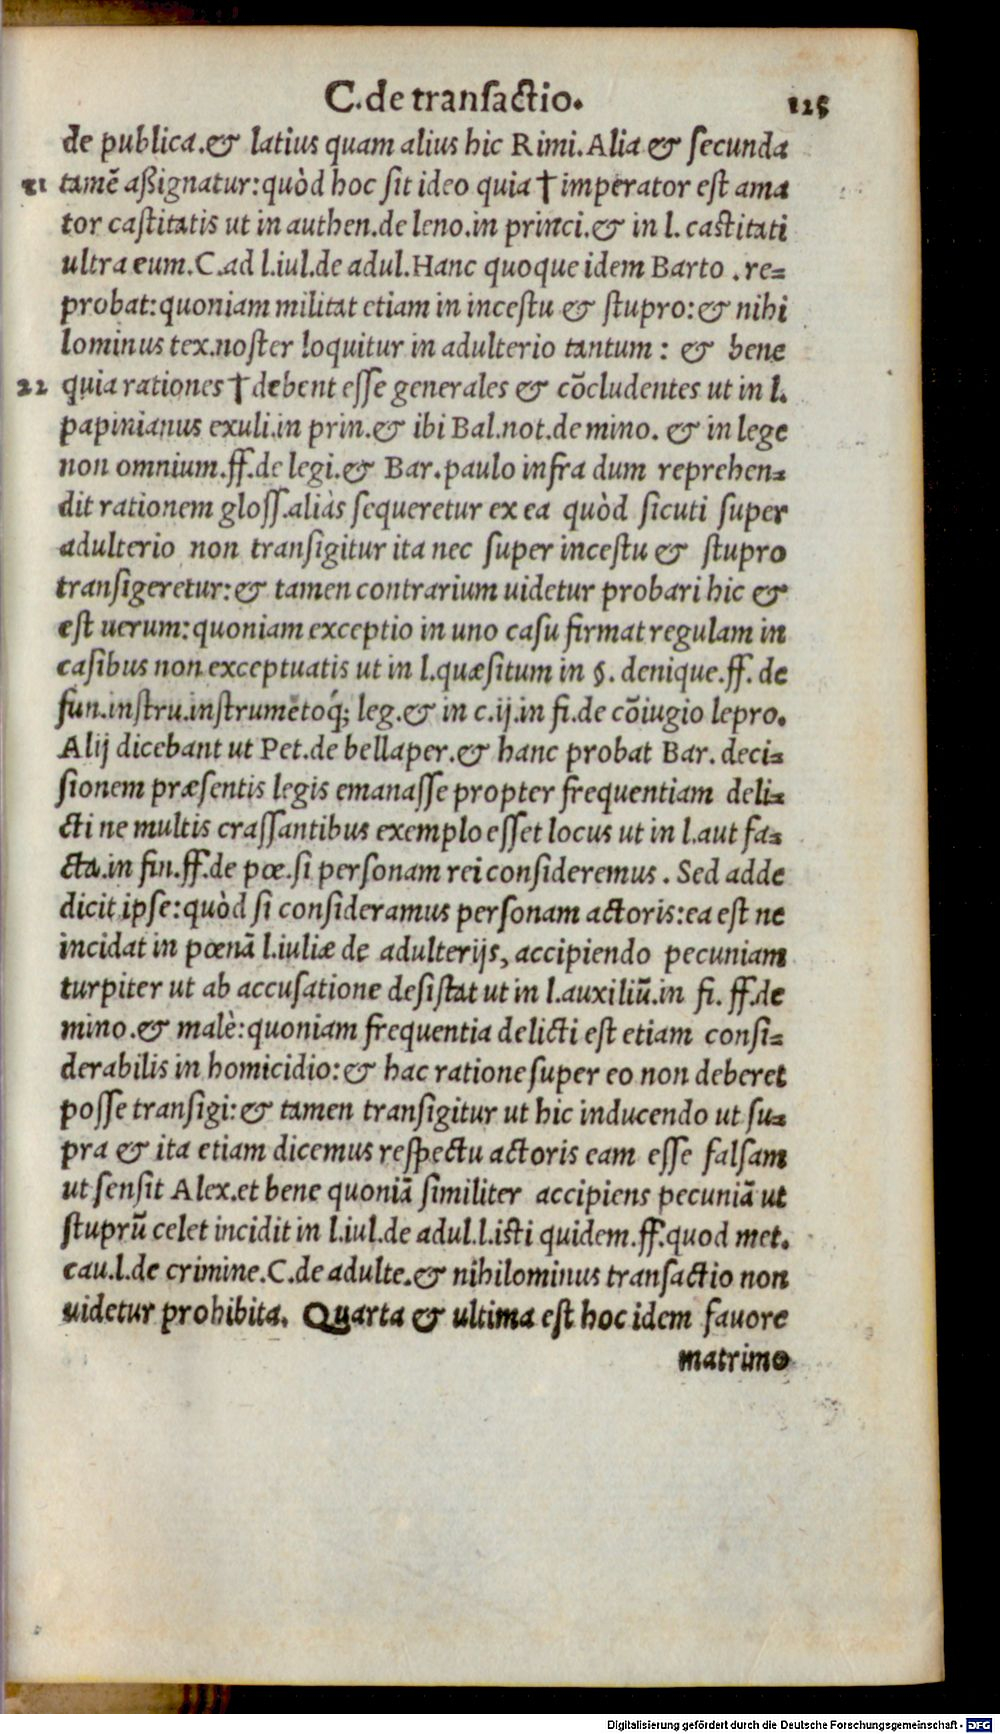 C. de transactio. 125
de publica. & latius quam alius hic Rimi. Alia & secunda
21 tamē aßignatur: quòd hoc sit ideo quia † imperator est ama
tor castitatis ut in authen. de leno. in princi. & in l. castitati
ultra eum. C. ad l. iul. de adul. Hanc quoque idem Barto . re=
probat: quoniam militat etiam in incestu & stupro: & nihi
lominus tex. noster loquitur in adulterio tantum : & bene
22 quia rationes † debent esse generales & cōcludentes ut in l.
papinianus exuli. in prin. & ibi Bal. not. de mino. & in lege
non omnium. ff. de legi. & Bar. paulo infra dum reprehen=
dit rationem gloss. aliàs sequeretur ex ea quòd sicuti super
adulterio non transigitur ita nec super incestu & stupro
transigeretur: & tamen contrarium uidetur probari hic &
est uerum: quoniam exceptio in uno casu firmat regulam in
casibus non exceptuatis ut in l. quæsitum in §. denique. ff. de
fun. instru. instrumētoq́; leg. & in c. ij. in fi. de cōiugio lepro.
Alij dicebant ut Pet. de bellaper. & hanc probat Bar. deci=
sionem præsentis legis emanasse propter frequentiam deli=
cti ne multis crassantibus exemplo esset locus ut in l. aut fa=
cta. in fin. ff. de pœ. si personam rei consideremus . Sed adde
dicit ipse: quòd si consideramus personam actoris: ea est ne
incidat in pœnā l. iuliæ de adulterijs, accipiendo pecuniam
turpiter ut ab accusatione desistat ut in l. auxiliū. in fi. ff. de
mino. & malè: quoniam frequentia delicti est etiam consi=
derabilis in homicidio: & hac ratione super eo non deberet
posse transigi: & tamen transigitur ut hic inducendo ut su=
pra & ita etiam dicemus respectu actoris eam esse falsam
ut sensit Alex. et bene quoniā similiter accipiens pecuniā ut
stuprū celet incidit in l. iul. de adul. l. isti quidem. ff. quod met.
cau. l. de crimine. C. de adulte. & nihilominus transactio non
uidetur prohibita. Quarta & ultima est hoc idem fauore
matrimo
Digitalisierung gefördert durch die Deutsche Forschungsgemeinschaft - DFG